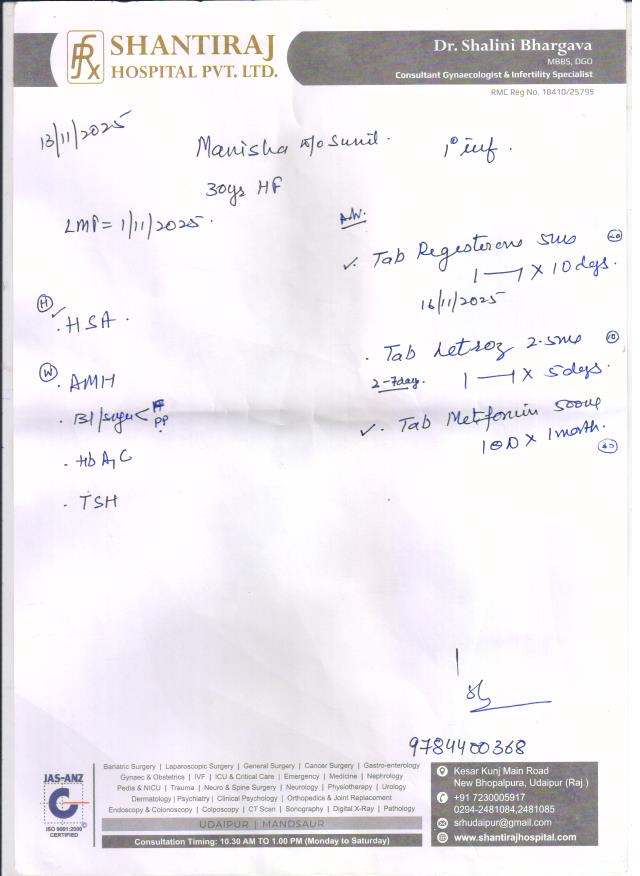 SHANTIRAJ
HOSPITAL PVT. LTD.
Dr. Shalini Bhargava
MBBS, DGO
Consultant Gynaecologist & Infertility Specialist
RMC Reg No. 18410/25795
13/11/2025
Manisha w/o Sunil.
1° inf.
30ys HF
LMP = 1/11/2025.
Adv.
✓ Tab Regesterone 5mg (20)
1 — 1 x 10 days.
16/11/2025
(H)
✓ . HSA.
. Tab Letroz 2.5mg (10)
2-7day. 1 — 1 x 5 days.
(W)
. AMH
. Bl/sugar < F
PP
✓ . Tab Metformin 500mg
1 OD x 1 month. (30)
. Hb A1C
. TSH
9784400368
JAS-ANZ
ISO 9001:2008
CERTIFIED
Bariatric Surgery | Laparoscopic Surgery | General Surgery | Cancer Surgery | Gastro-enterology
Gynaec & Obstetrics | IVF | ICU & Critical Care | Emergency | Medicine | Nephrology
Pedia & NICU | Trauma | Neuro & Spine Surgery | Neurology | Physiotherapy | Urology
Dermatology | Psychiatry | Clinical Psychology | Orthopedics & Joint Replacement
Endoscopy & Colonoscopy | Colposcopy | CT Scan | Sonography | Digital X-Ray | Pathology
UDAIPUR | MANDSAUR
Consultation Timing: 10.30 AM TO 1.00 PM (Monday to Saturday)
Kesar Kunj Main Road
New Bhopalpura, Udaipur (Raj.)
+91 7230005917
0294-2481084,2481085
srhudaipur@gmail.com
www.shantirajhospital.com